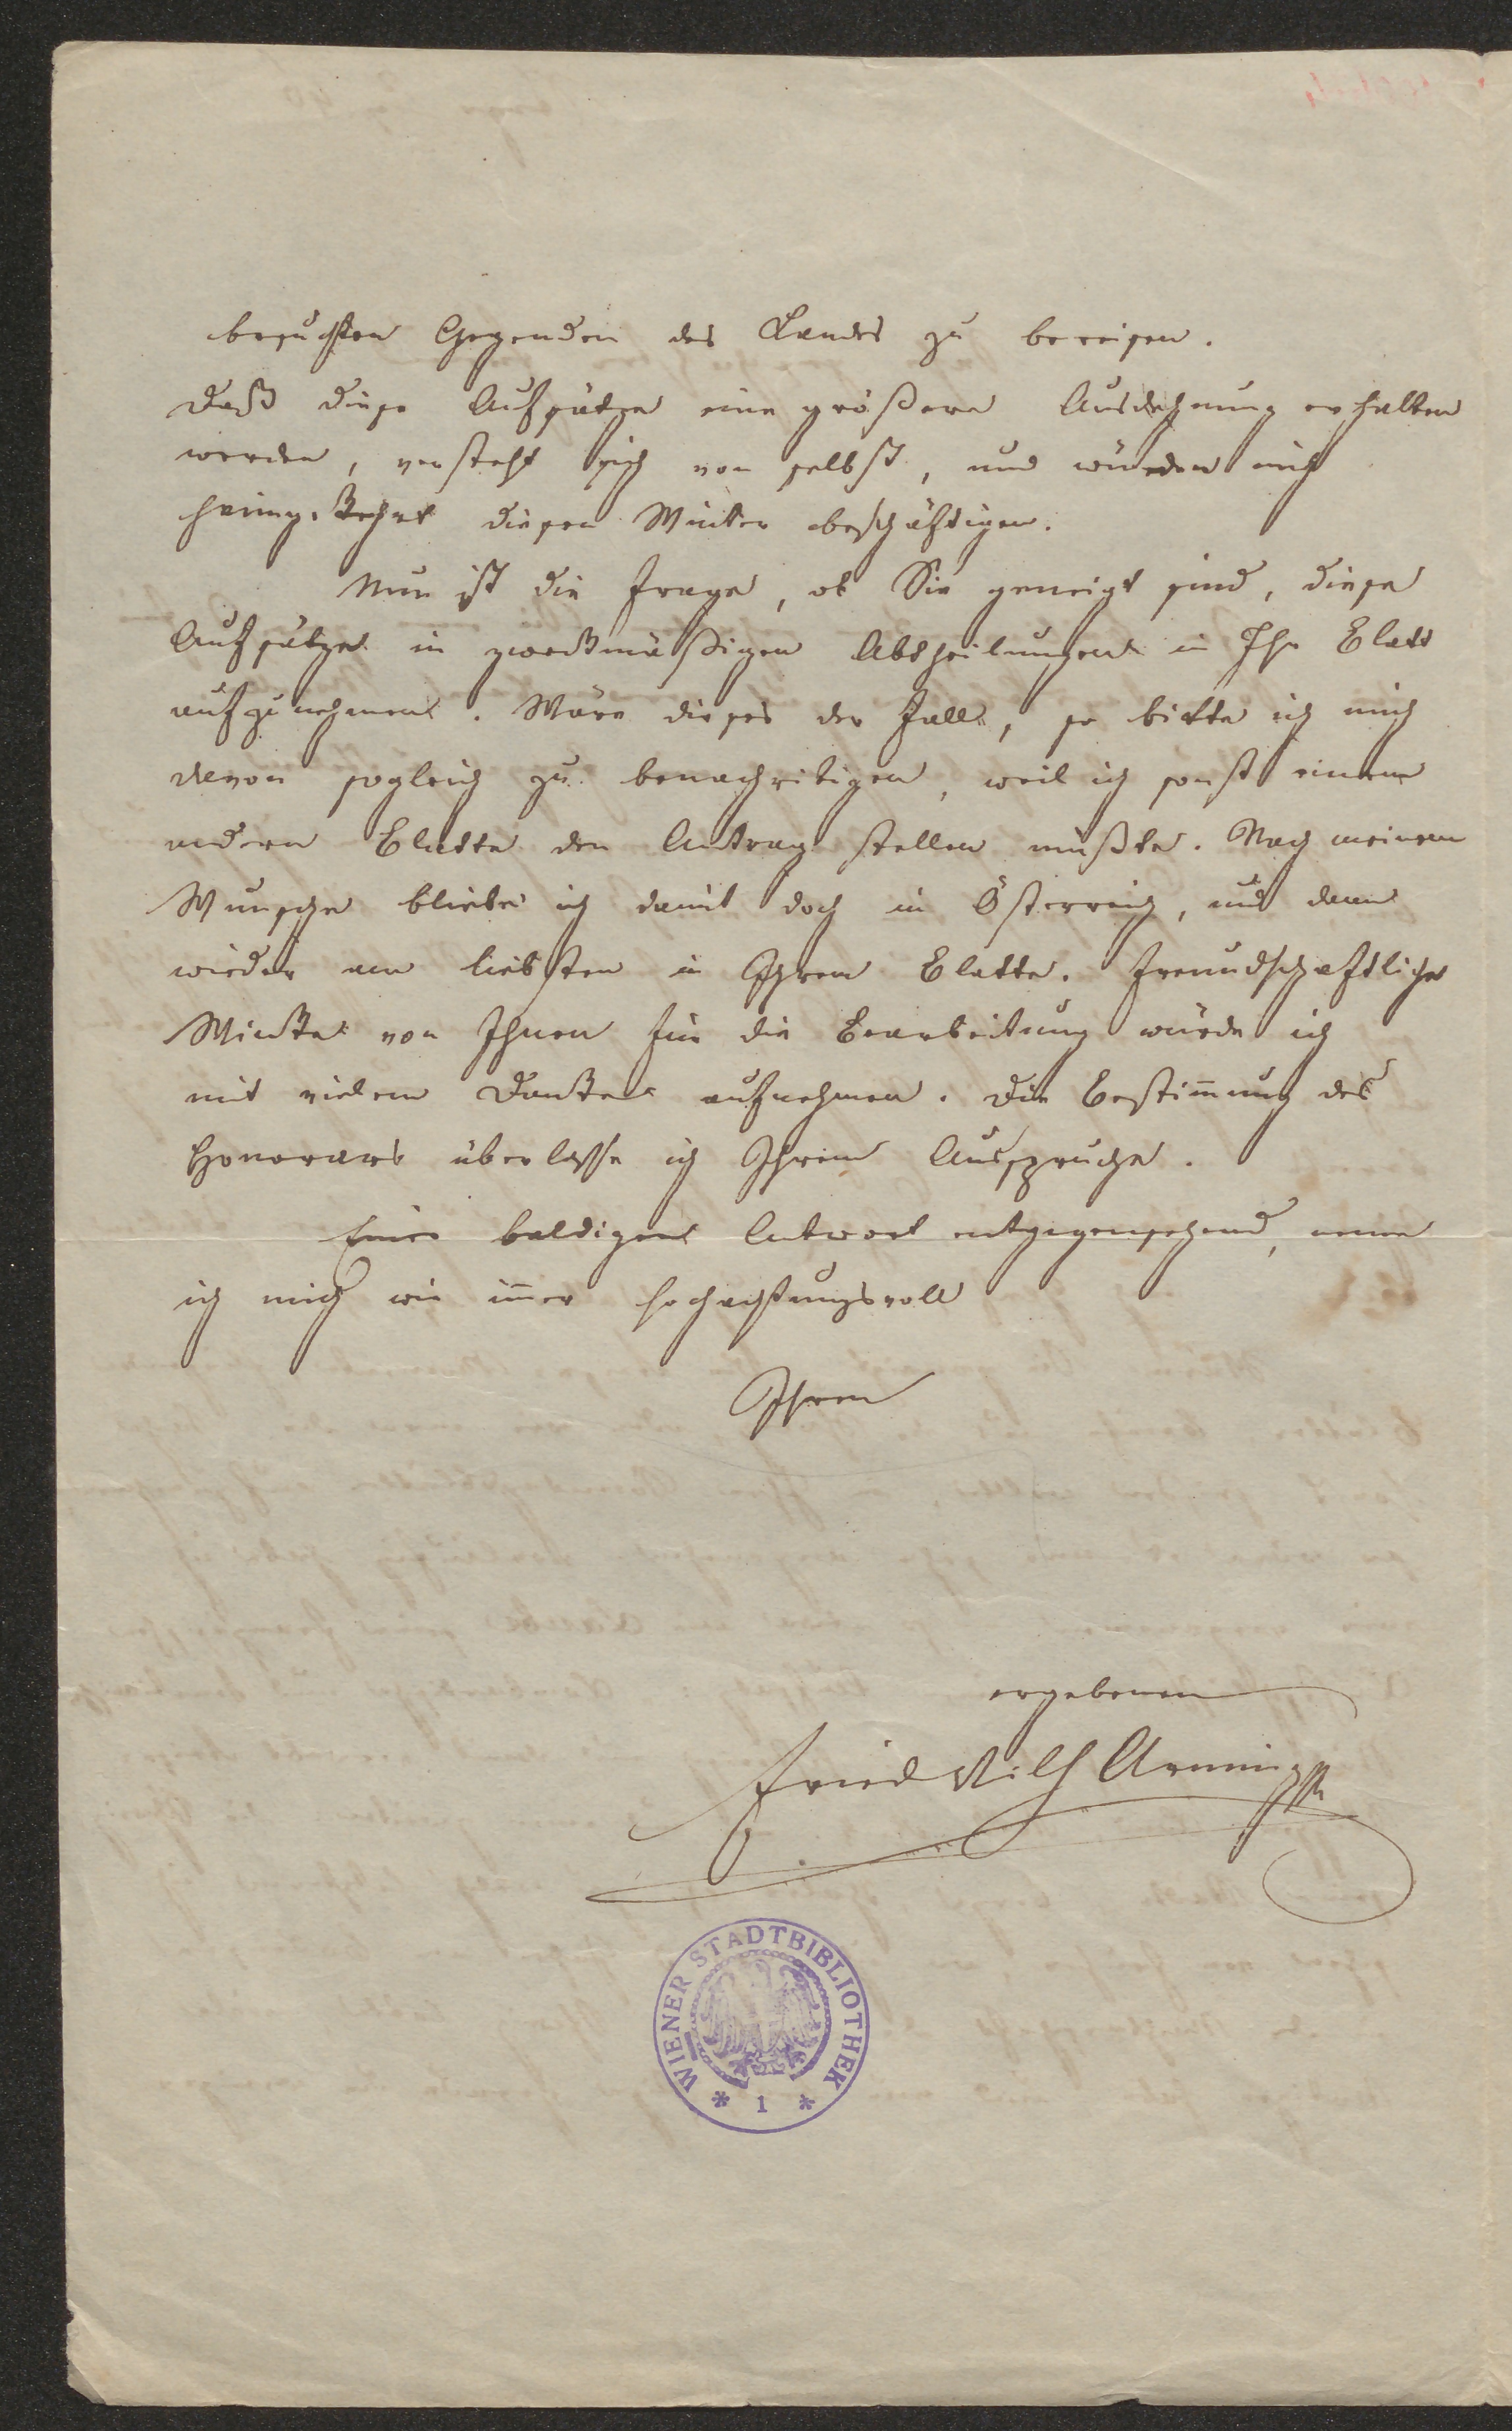 besuchten Gegenden des Landes zu bereisen.
Daß diese Aufsätze eine größere Ausdehnung erhalten
werden, versteht sich von selbst, und würden mich
heimgekehrt diesen Winter beschäftigen.
Nun ist die Frage, ob Sie geneigt sind, diese
Aufsätze in zweckmäßigen Abtheilungen in Ihr Blatt
aufzunehmen. Wäre dieses der Fall, so bitte ich mich
davon sogleich zu benachritigen, weil ich sonst einem
andern Blatte den Antrag stellen müßte. Nach meinem
Wunsche bliebe ich damit doch in Österreich, und dann
wieder am liebsten in Ihrem Blatte. Freundschaftliche
Winke von Ihnen für die Bearbeitung würde ich
mit vielem Danke aufnehmen. Die Bestim̄ung des
Honorars überlasse ich Ihrem Ausspruche.
Einer baldigen Antwort entgegensehend, nenne
ich mich wie im̄er hochachtungsvoll
Ihren
ergebenen
Fried Wilh Arming
WIENER STADTBIBLIOTHEK
* 1 *